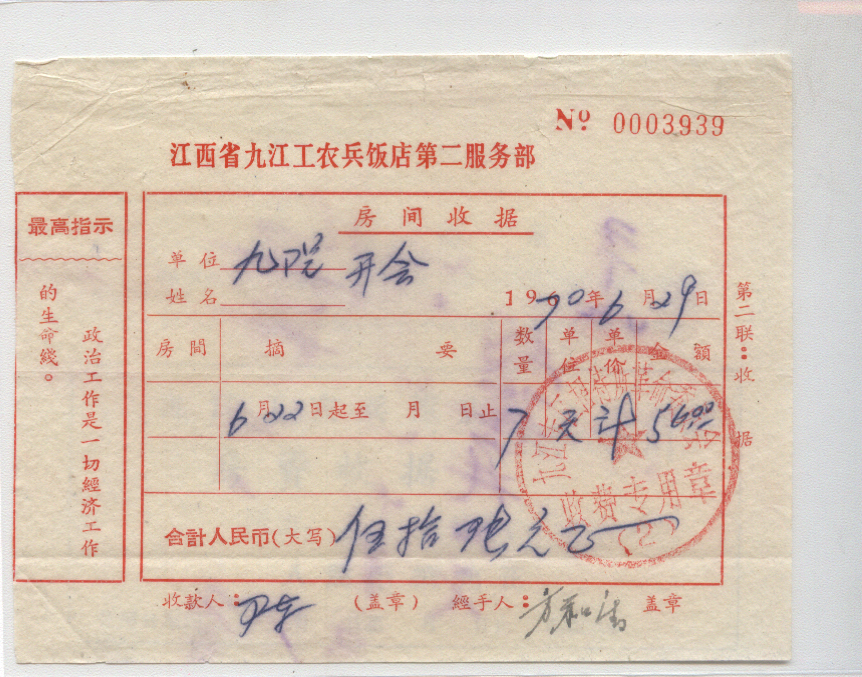 No. 0003939
江西省九江工农兵饭店第二服务部
最高指示
政治工作是一切經济工作
的生命綫。
房间收据
单位 九院 开会
姓名
1970年6月29日
房間 摘要 数量 单位 单价 金額
6月22日起至 月 日止 7 天 计
合計人民币(大写) 伍拾 元
收款人: (盖章) 經手人: 盖章
第二联:收据
收费专用章
(2)